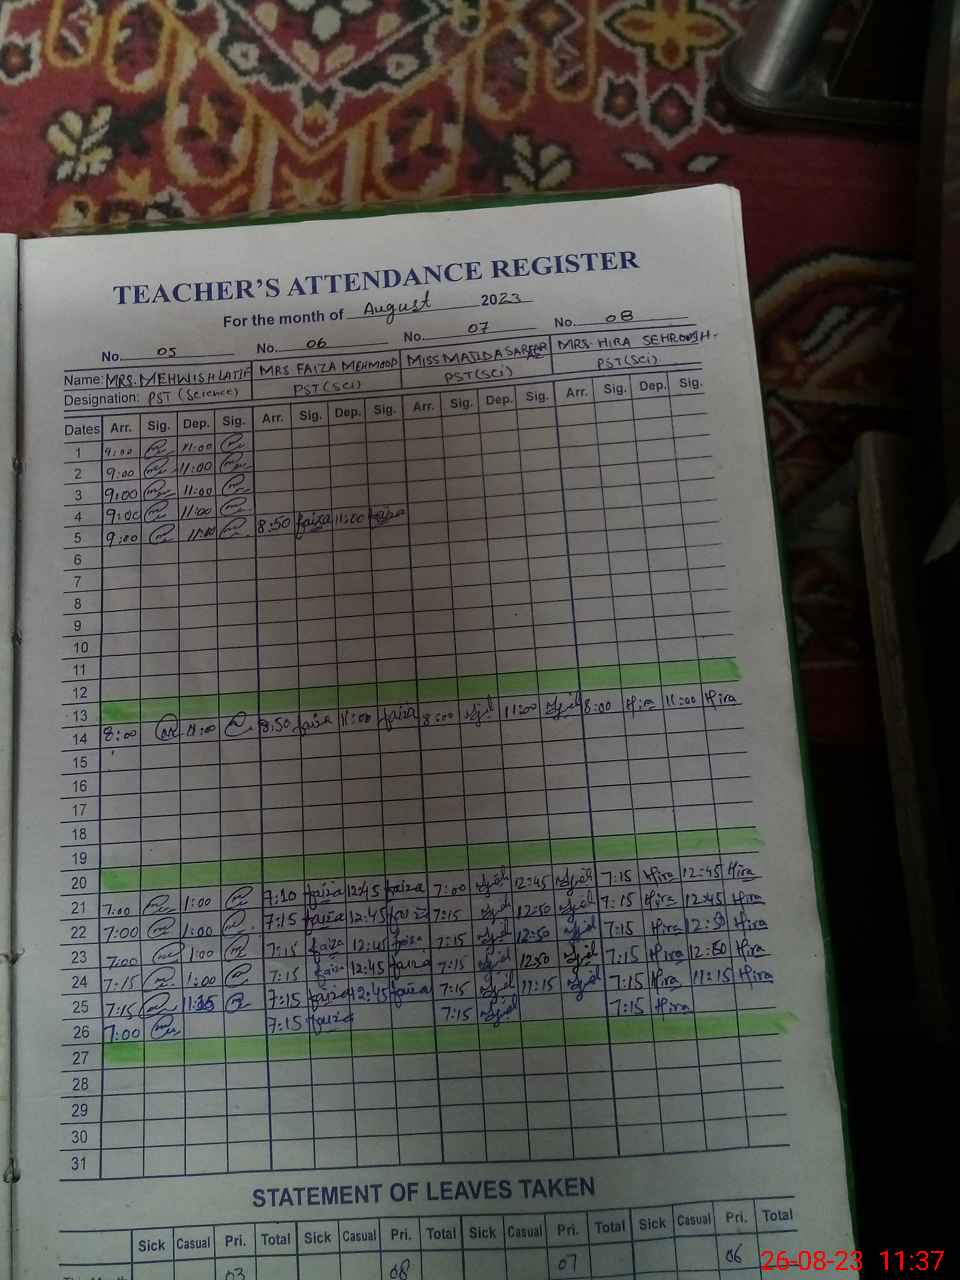 TEACHER'S ATTENDANCE REGISTER
For the month of August 2023
No. 05 No. 06 No. 07 No. 08
Name: MRS. MEHWISH LATIF MRS. FAIZA MEHMOOD MISS MAJIDA MRS. HIRA SEHROSH
Designation: PST (Science) PST (SCI) PST (SCI) PST (SCI)
Dates Arr. Sig. Dep. Sig. Arr. Sig. Dep. Sig. Arr. Sig. Dep. Sig. Arr. Sig. Dep. Sig.
1 9:00 11:00
2 9:00 11:00
3 9:00 11:00
4 9:00 11:00
5 9:00 11:00 8:50 faiza 11:00 faiza
6
7
8
9
10
11
12
13
14 8:00 11:00 8:50 faiza 11:00 faiza 8:00 11:00 8:00 Hira 11:00 Hira
15
16
17
18
19
20
21 7:00 1:00 7:10 faiza 12:45 faiza 7:00 12:45 7:15 Hira 12:45 Hira
22 7:00 1:00 7:15 faiza 12:45 faiza 7:15 12:50 7:15 Hira 12:45 Hira
23 7:00 1:00 7:15 faiza 12:45 faiza 7:15 12:50 7:15 Hira 12:50 Hira
24 7:15 1:00 7:15 faiza 12:45 faiza 7:15 12:50 7:15 Hira 12:50 Hira
25 7:15 7:15 faiza 12:45 faiza 7:15 11:15 7:15 Hira 11:15 Hira
26 7:00 7:15 faiza 7:15 7:15 Hira
27
28
29
30
31
STATEMENT OF LEAVES TAKEN
Sick Casual Pri. Total Sick Casual Pri. Total Sick Casual Pri. Total Sick Casual Pri. Total
03 08 07 06
26-08-23 11:37